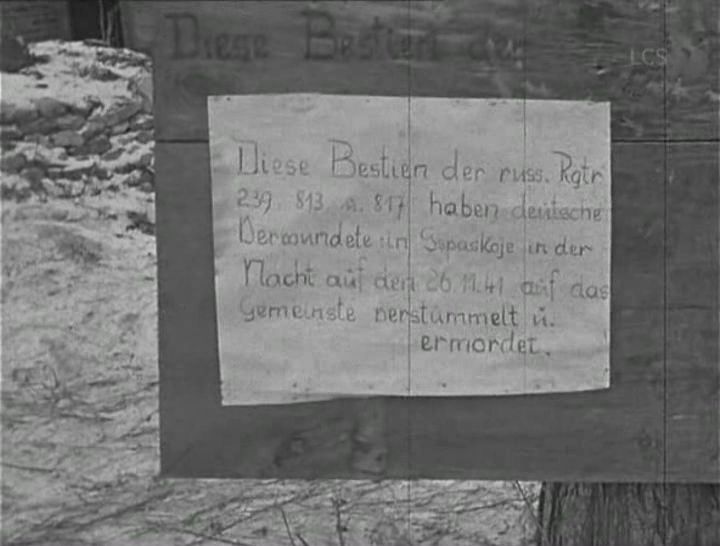 Diese Bestien der
LCS
Diese Bestien der russ. Rgtr
239 813 u. 817 haben deutsche
Verwundete in Sspaskoje in der
Nacht auf den 26.11.41 auf das
Gemeinste verstümmelt u.
ermordet.